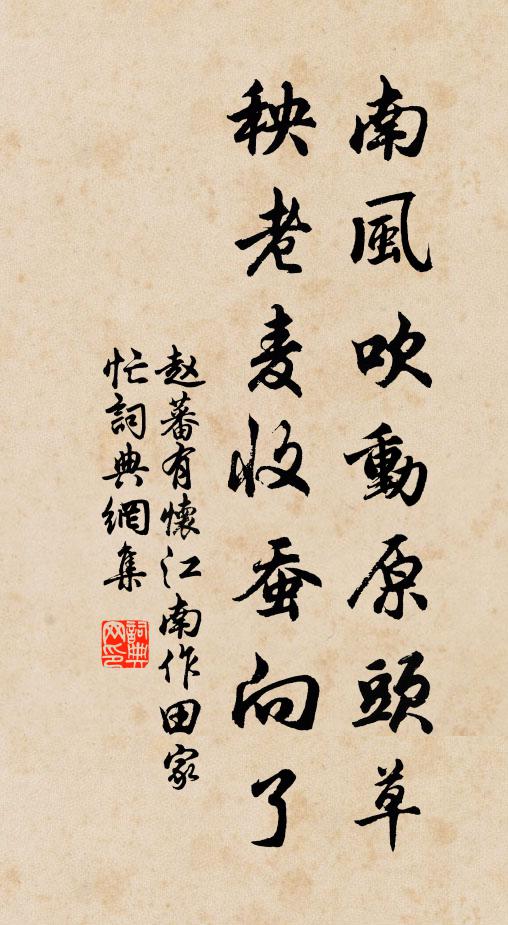 南風吹動原頭草
秧老麦收蚕向了
赵蕃有懷江南作田家
忙詞典網集
詞典网印